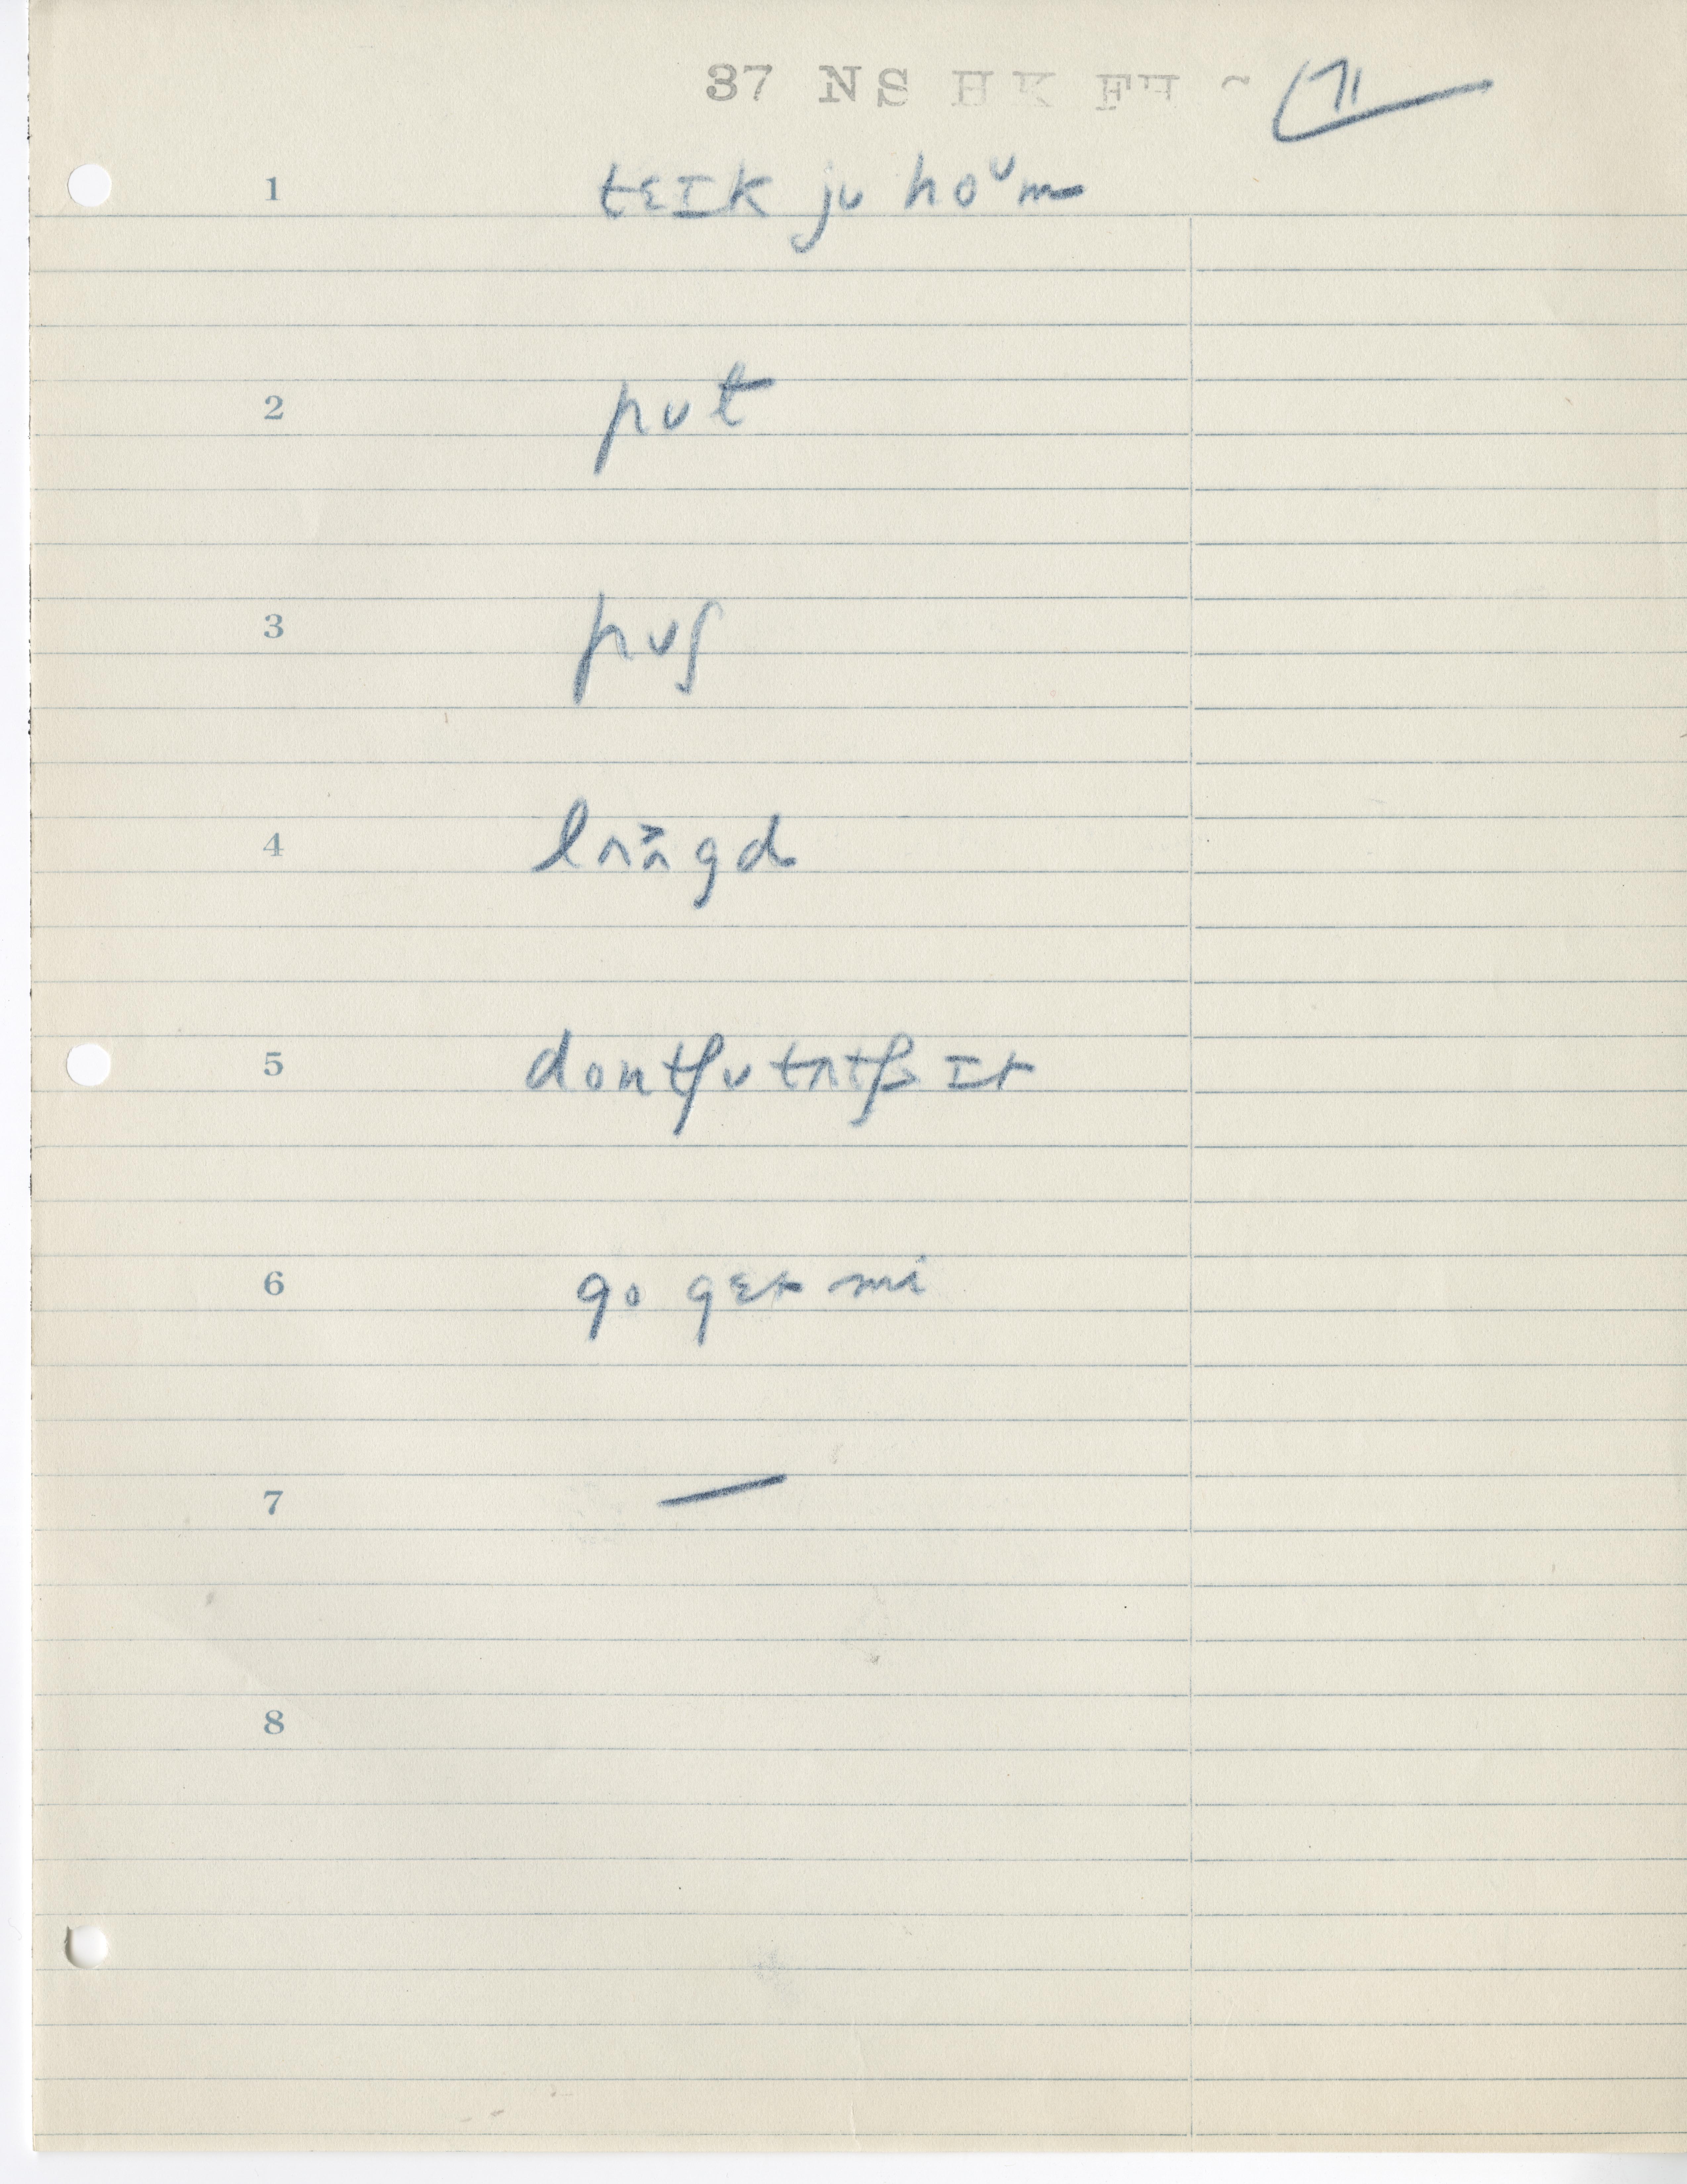 37 NS HK FH ~ 71
1 tɛɪk jʊ hoᵘm
2 pʊt
3 pʊʃ
4 lʌʌ˃gd
5 dontʃʊ tʌtʃ ɪt
6 go gɛt mi
7 —
8